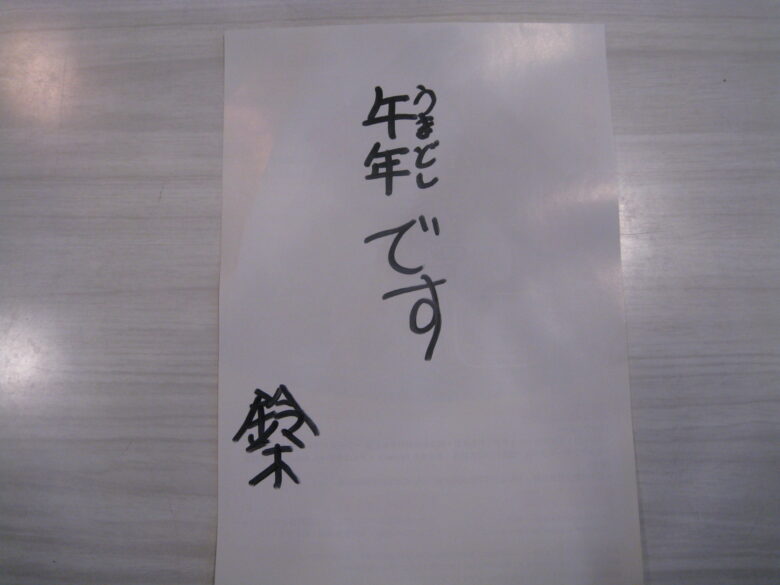 午年です
うまどし
鈴木